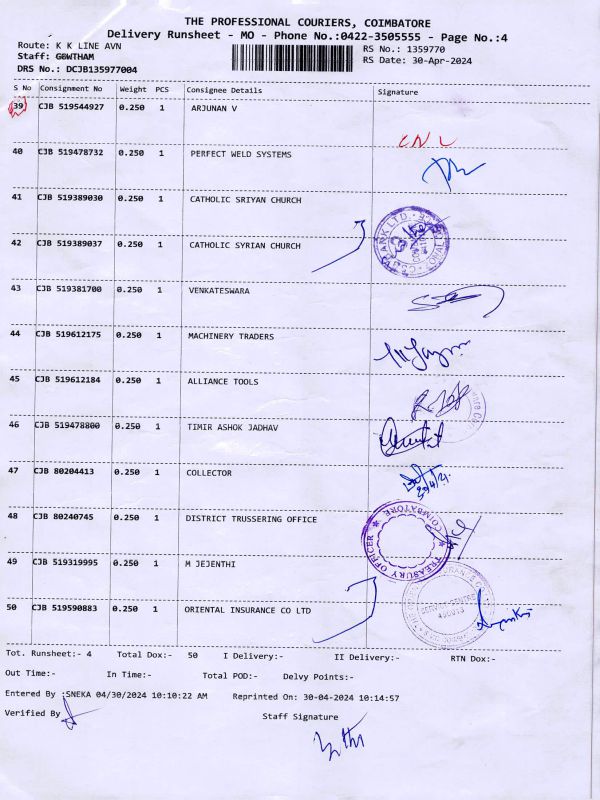 THE PROFESSIONAL COURIERS, COIMBATORE
Delivery Runsheet - MO - Phone No.:0422-3505555 - Page No.:4
Route: K K LINE AVN RS No.: 1359770
Staff: GOWTHAM RS Date: 30-Apr-2024
DRS No.: DCJB135977004
S No Consignment No Weight PCS Consignee Details Signature
39 CJB 519544927 0.250 1 ARJUNAN V
CNL
40 CJB 519478732 0.250 1 PERFECT WELD SYSTEMS
41 CJB 519389030 0.250 1 CATHOLIC SRIYAN CHURCH
42 CJB 519389037 0.250 1 CATHOLIC SYRIAN CHURCH
43 CJB 519381700 0.250 1 VENKATESWARA
44 CJB 519612175 0.250 1 MACHINERY TRADERS
45 CJB 519612184 0.250 1 ALLIANCE TOOLS
46 CJB 519478800 0.250 1 TIMIR ASHOK JADHAV
47 CJB 80204413 0.250 1 COLLECTOR
48 CJB 80240745 0.250 1 DISTRICT TRUSSERING OFFICE
TREASURY OFFICER COIMBATORE
49 CJB 519319995 0.250 1 M JEJENTHI
50 CJB 519590883 0.250 1 ORIENTAL INSURANCE CO LTD
Tot. Runsheet:- 4 Total Dox:- 50 I Delivery:- II Delivery:- RTN Dox:-
Out Time:- In Time:- Total POD:- Delvy Points:-
Entered By :SNEKA 04/30/2024 10:10:22 AM Reprinted On: 30-04-2024 10:14:57
Verified By Staff Signature